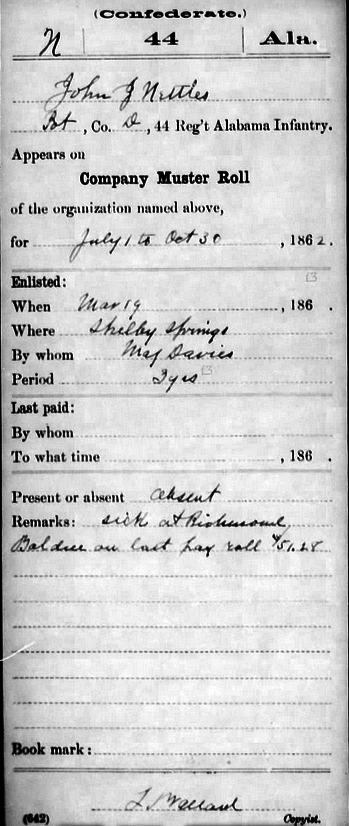 (Confederate.)
N 44 Ala.
John J Nettles
Pvt, Co. D, 44 Reg't Alabama Infantry.
Appears on
Company Muster Roll
of the organization named above,
for July 1 to Oct 30, 1862.
Enlisted:
When Mar 19, 186 .
Where Shelby Springs
By whom Maj Davies
Period 3 yrs
Last paid:
By whom
To what time , 186 .
Present or absent absent
Remarks: sick at Richmond,
Bal due on last pay roll $51.28
Book mark:
(642) Copyist.